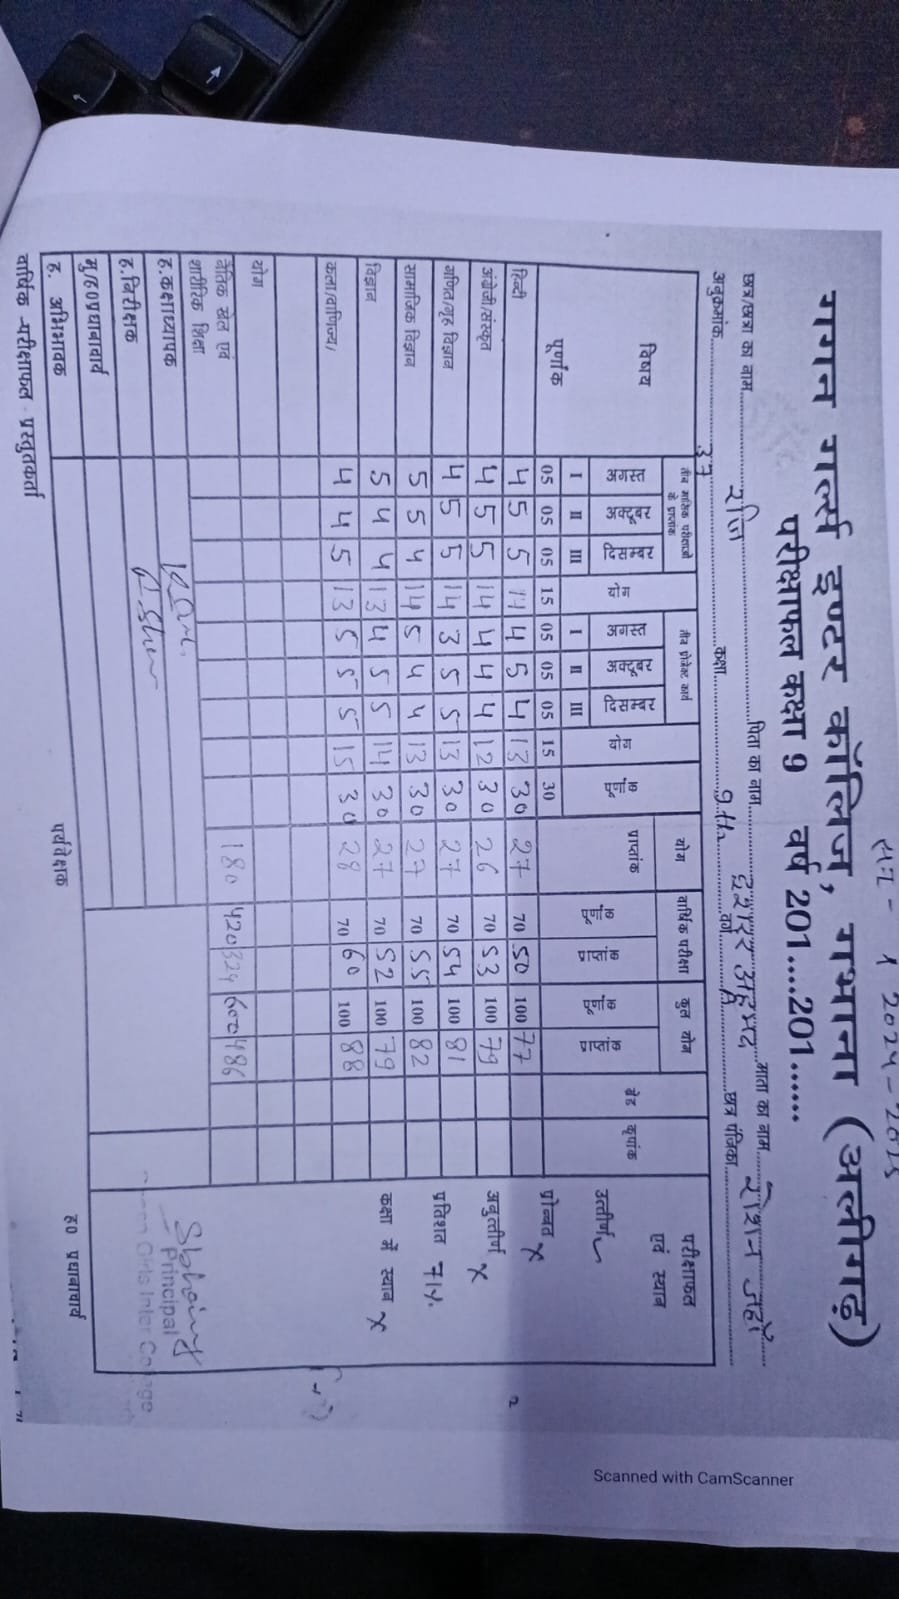 सत्र - 2024-2025
गगन गर्ल्स इण्टर कॉलिज, गभाना (अलीगढ़)
परीक्षाफल कक्षा 9 वर्ष 201....201......
छात्र/छात्रा का नाम पिता का नाम अहमद माता का नाम रोशन जहाँ
अनुक्रमांक 37 कक्षा 9th वर्ग A छात्र पंजिका
विषय तीन मासिक परीक्षाओं के प्राप्तांक योग तीन प्रोजेक्ट कार्य योग पूर्णांक योग वार्षिक परीक्षा कुल योग ग्रेड कृपांक परीक्षाफल एवं स्थान
अगस्त अक्टूबर दिसम्बर अगस्त अक्टूबर दिसम्बर प्राप्तांक पूर्णांक प्राप्तांक पूर्णांक प्राप्तांक
I II III I II III उत्तीर्ण
पूर्णांक 05 05 05 15 05 05 05 15 30 प्रोन्नत x
हिन्दी 4 5 5 14 4 5 4 13 30 27 70 50 100 77
अंग्रेजी/संस्कृत 4 5 5 14 4 4 4 12 30 26 70 53 100 79 अनुत्तीर्ण x
गणित/गृह विज्ञान 4 5 5 14 3 5 5 13 30 27 70 54 100 81 प्रतिशत 71%.
सामाजिक विज्ञान 5 5 4 14 5 4 4 13 30 27 70 55 100 82
विज्ञान 5 4 4 13 4 5 5 14 30 27 70 52 100 79 कक्षा में स्थान x
कला/वाणिज्य/ 4 4 5 13 5 5 5 15 30 28 70 60 100 88
योग
नैतिक खेल एवं शारीरिक शिक्षा 180 420 324 600 486
ह.कक्षाध्यापक
ह.निरीक्षक
मु/ह0प्रधानाचार्य
ह. अभिभावक
Principal
Girls Inter College
वार्षिक -परीक्षाफल प्रस्तुतकर्ता पर्यवेक्षक ह0 प्रधानाचार्य
Scanned with CamScanner